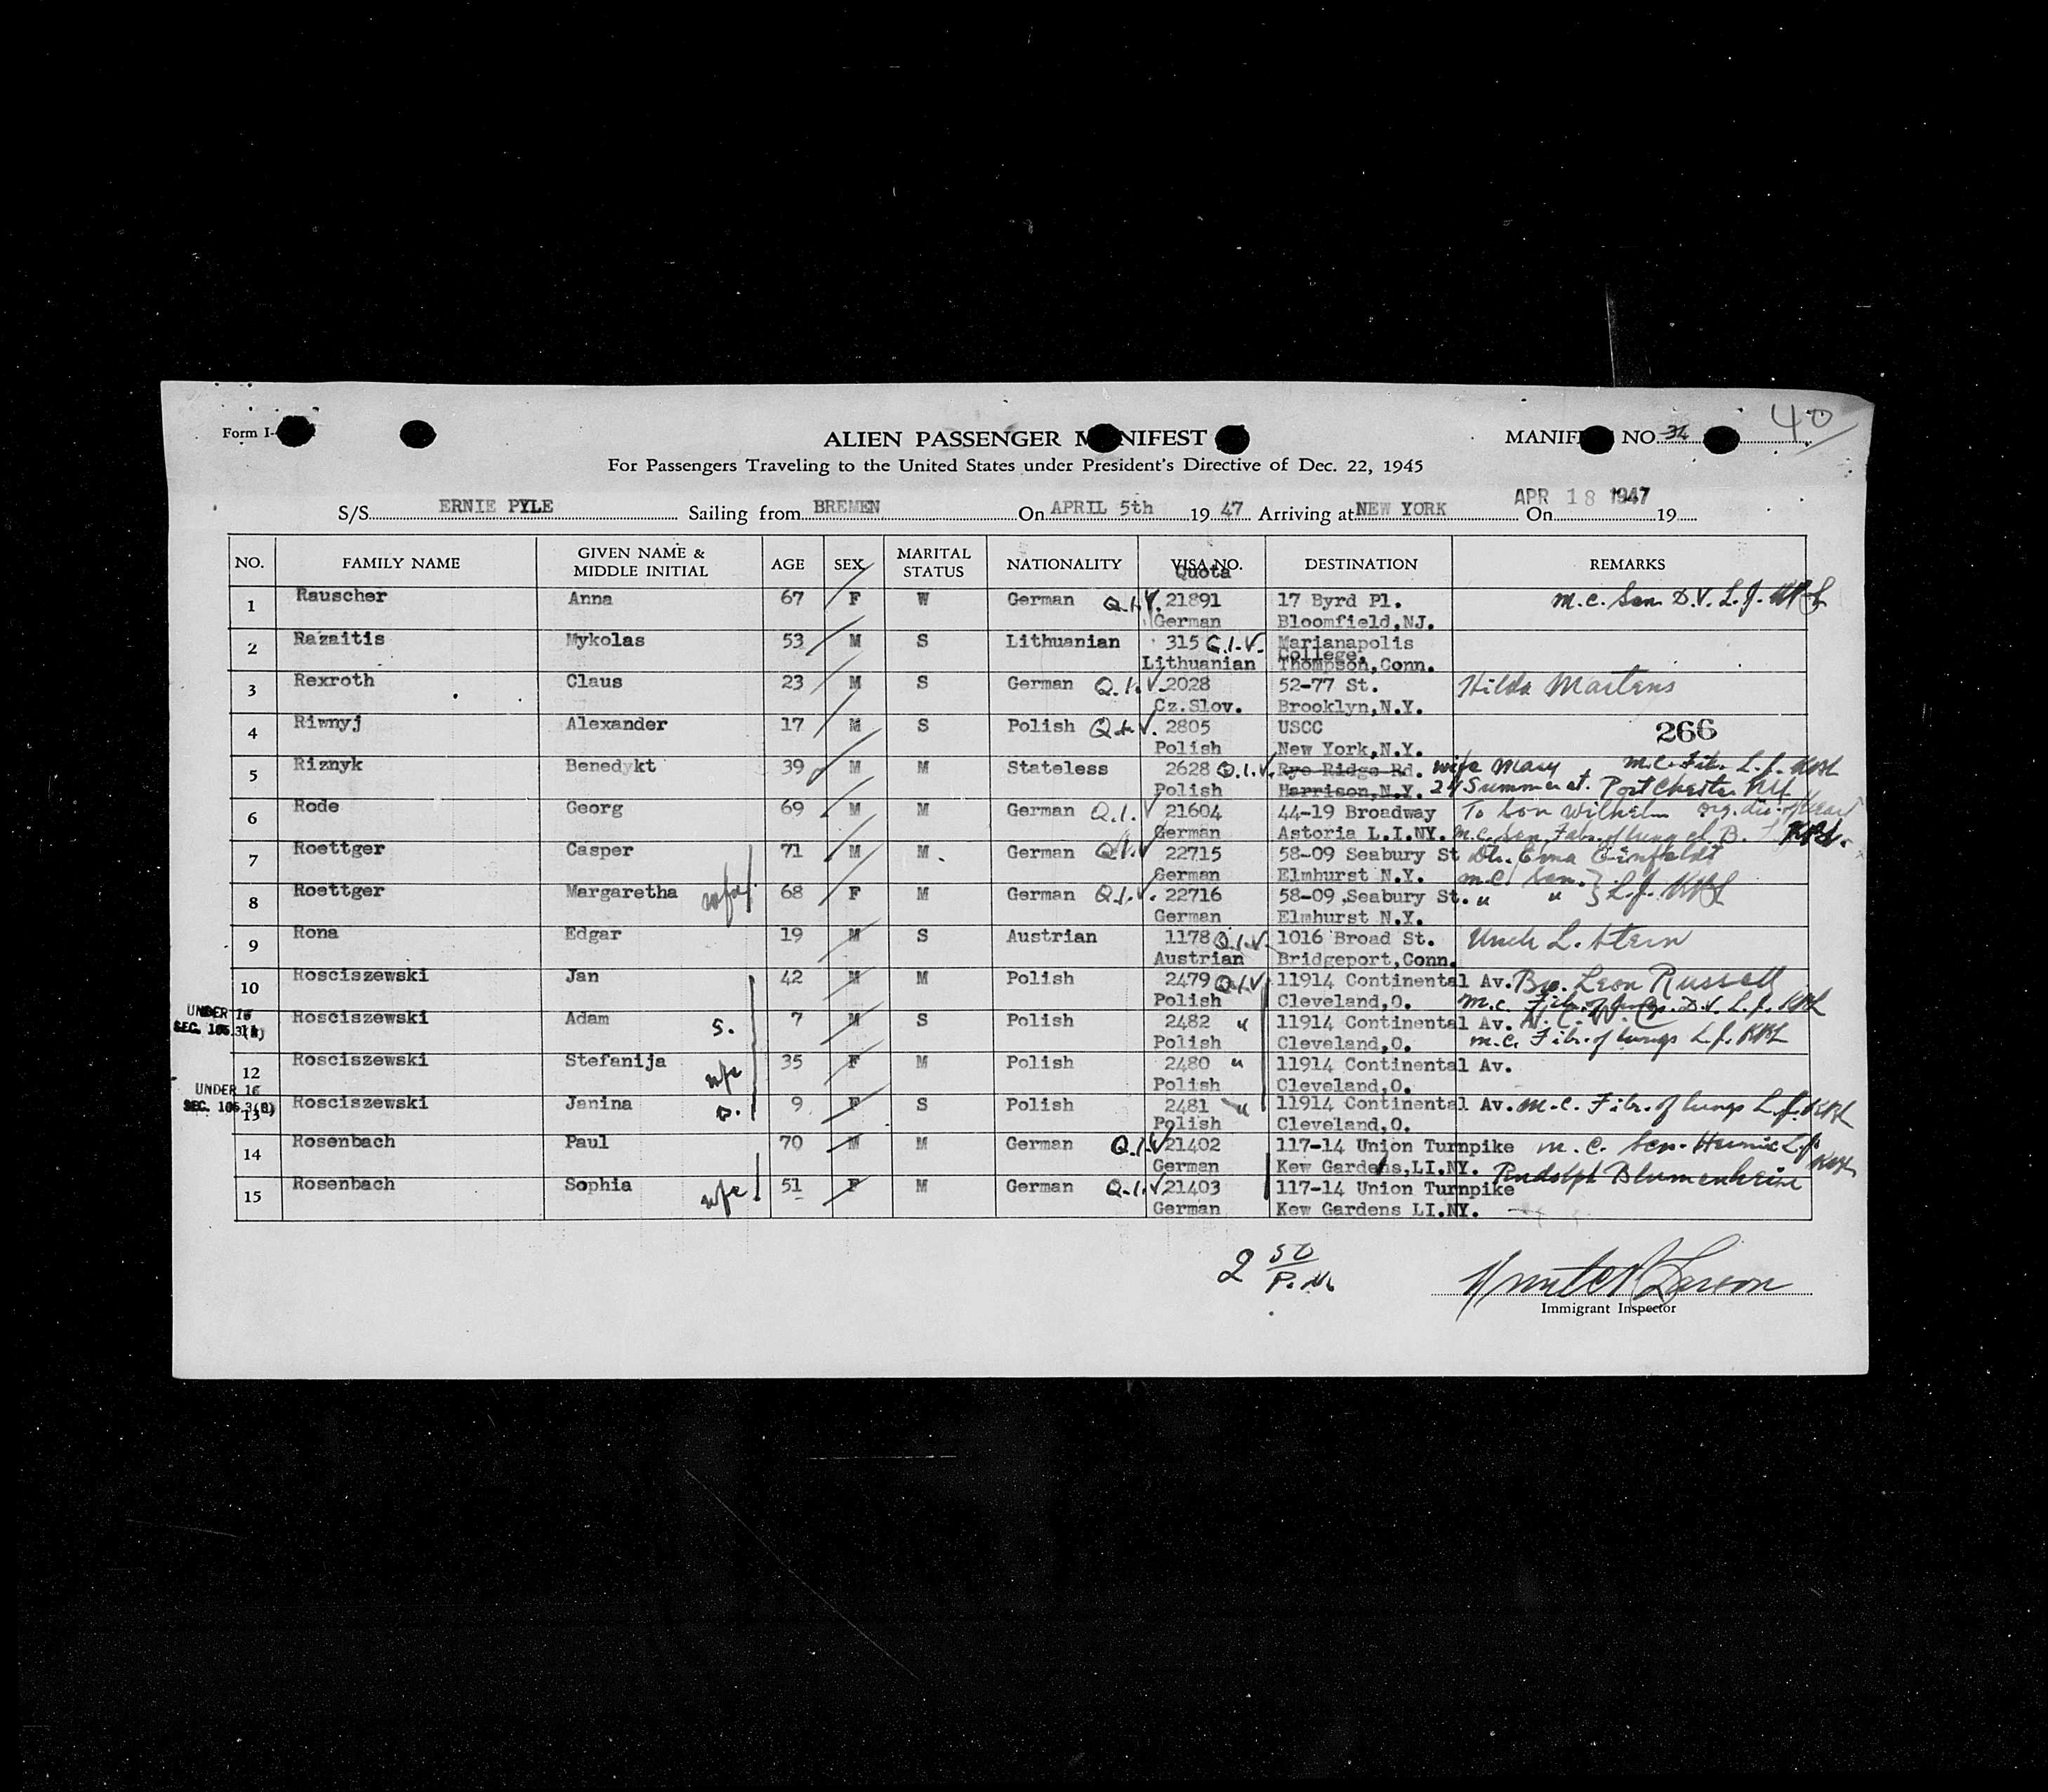 40
Form I-
ALIEN PASSENGER M NIFEST
MANIF NO. 34
For Passengers Traveling to the United States under President's Directive of Dec. 22, 1945
S/S ERNIE PYLE Sailing from BREMEN On APRIL 5th 19 47 Arriving at NEW YORK On APR 18 1947 19
NO. FAMILY NAME GIVEN NAME & MIDDLE INITIAL AGE SEX MARITAL STATUS NATIONALITY VISA NO. Quota DESTINATION REMARKS
1 Rauscher Anna 67 F W German Q.I.V. 21891 17 Byrd Pl. m.c. Sen. D.V. L.J. KBL
German Bloomfield,NJ.
2 Razaitis Mykolas 53 M S Lithuanian 315 Q.I.V. Marianapolis
College,
Lithuanian Thompson,Conn.
3 Rexroth Claus 23 M S German Q.I.V. 2028 52-77 St. Hilda Martens
Cz.Slov. Brooklyn,N.Y.
4 Riwnyj Alexander 17 M S Polish Q.I.V. 2805 USCC 266
Polish New York,N.Y.
5 Riznyk Benedykt 39 M M Stateless 2628 Q.I.V. Rye Ridge Rd. wife Mary m.c. Fibr. L.J. KBL
Polish Harrison,N.Y. 24 Summer st. Port Chester NY
6 Rode Georg 69 M M German Q.I.V. 21604 44-19 Broadway To Son Wilhelm org. dis. of heart
German Astoria L.I.NY. m.c. Sen. of lung cl B. KBL.
7 Roettger Casper 71 M M German Q.I.V. 22715 58-09 Seabury St Dtr. Erna
German Elmhurst N.Y. m.c. Sen.
8 Roettger Margaretha wife 68 F M German Q.I.V. 22716 58-09 Seabury St. " " } L.J. KBL
German Elmhurst N.Y.
9 Rona Edgar 19 M S Austrian 1178 Q.I.V. 1016 Broad St. Uncle L. Stern
Austrian Bridgeport,Conn.
10 Rosciszewski Jan 42 M M Polish 2479 Q.I.V. 11914 Continental Av. Bro. Leon Russell
Polish Cleveland,O. m.c. Fibr. of lungs. D.V. L.J. KBL
UNDER 16
SEC. 105.3(A)
11 Rosciszewski Adam S. 7 M S Polish 2482 " 11914 Continental Av.
Polish Cleveland,O. m.c. Fibr. of lungs L.J. KBL
12 Rosciszewski Stefanija wife 35 F M Polish 2480 " 11914 Continental Av.
Polish Cleveland,O.
UNDER 16
SEC. 105.3(A)
13 Rosciszewski Janina D. 9 F S Polish 2481 " 11914 Continental Av. m.c. Fibr. of lungs L.J. KBL
Polish Cleveland,O.
14 Rosenbach Paul 70 M M German Q.I.V. 21402 117-14 Union Turnpike m.c. Sen. Hernia L.J. KBL
German Kew Gardens,LI.NY. Rudolph Blumenheim
15 Rosenbach Sophia wife 51 F M German Q.I.V. 21403 117-14 Union Turnpike
German Kew Gardens LI.NY.
2 50 P.M.
Immigrant Inspector